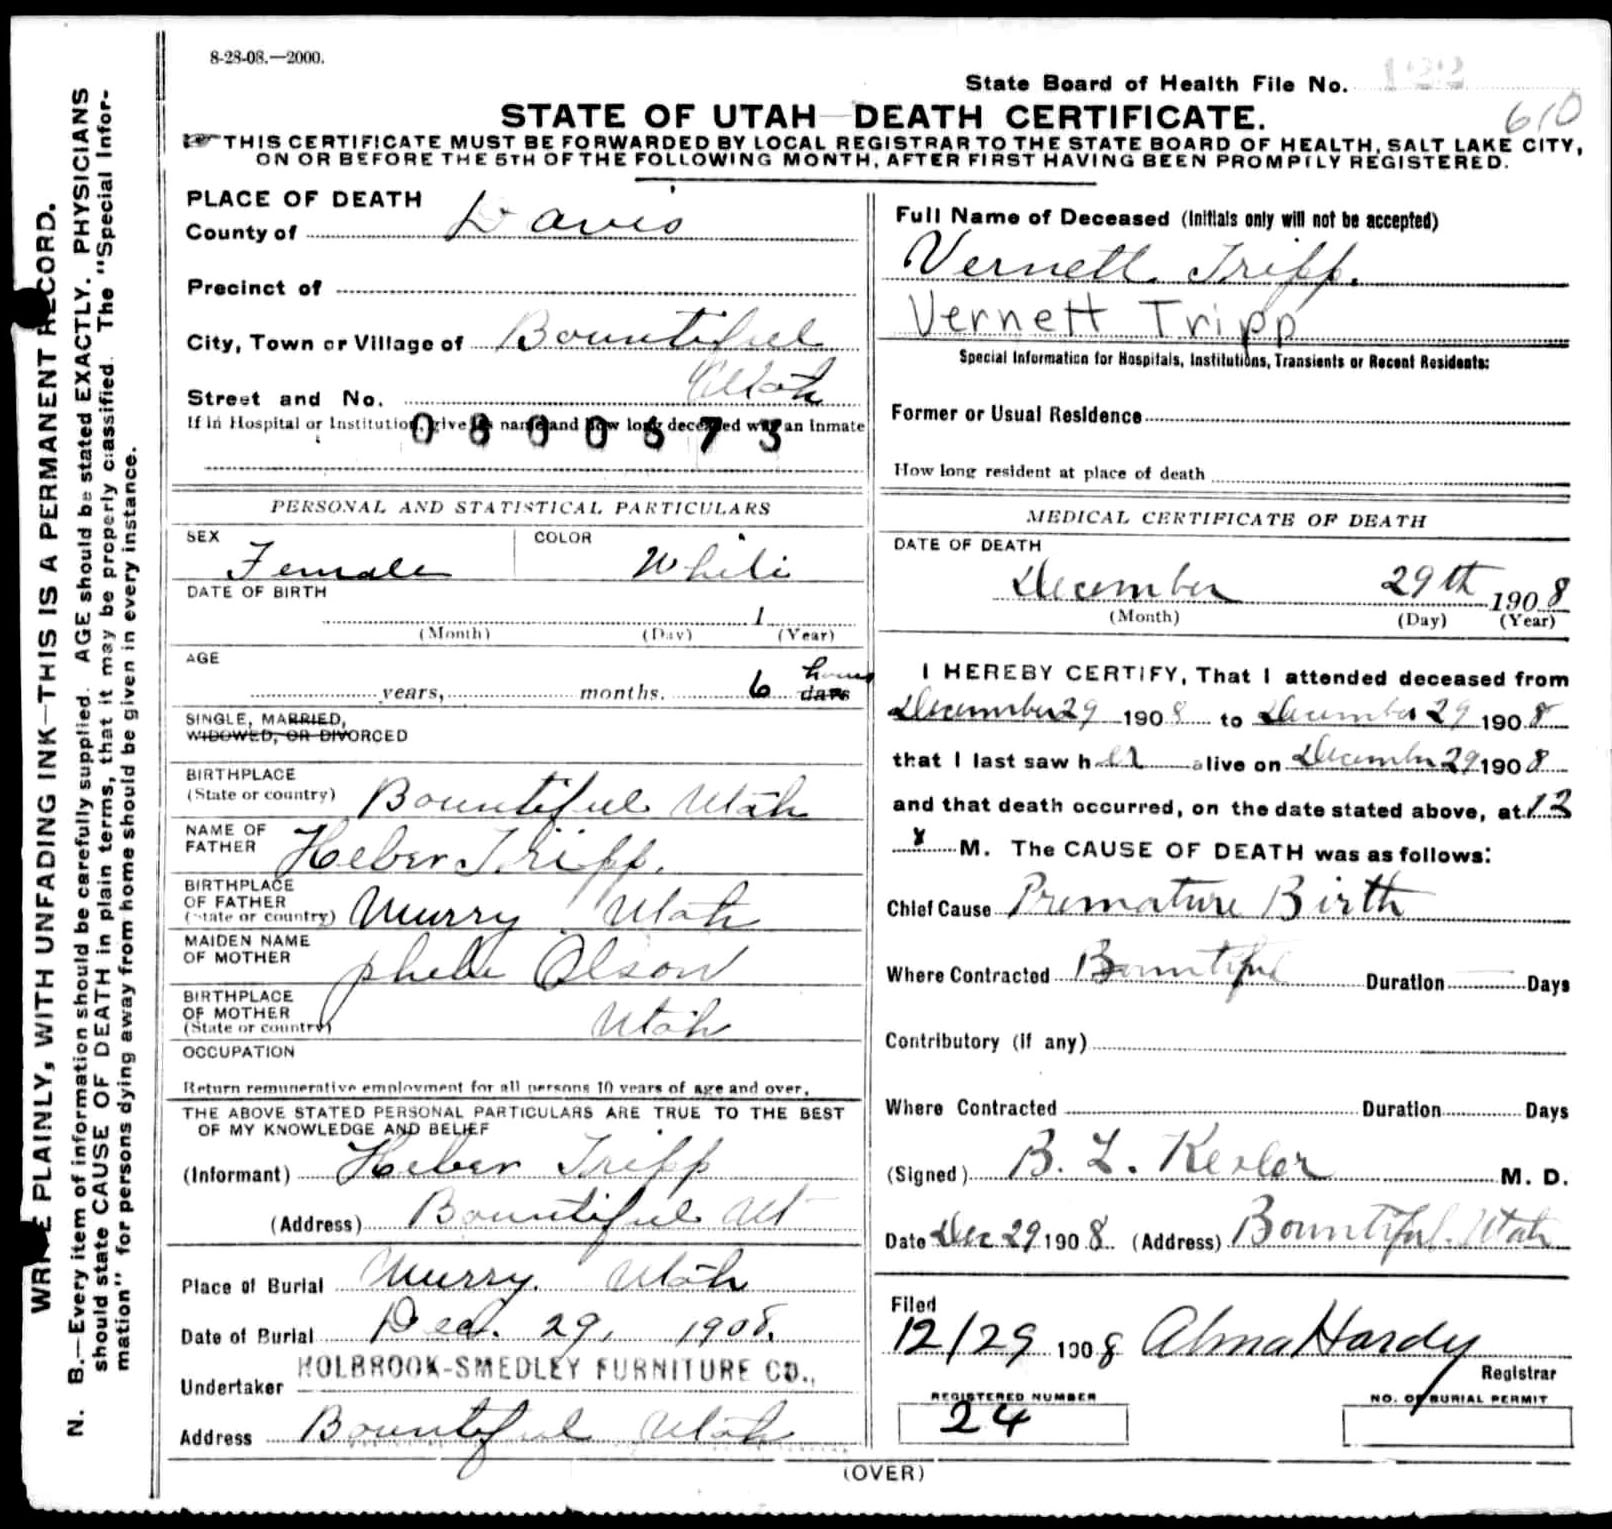 8-28-08.—2000.
State Board of Health File No. 122
610
STATE OF UTAH—DEATH CERTIFICATE.
THIS CERTIFICATE MUST BE FORWARDED BY LOCAL REGISTRAR TO THE STATE BOARD OF HEALTH, SALT LAKE CITY,
ON OR BEFORE THE 5TH OF THE FOLLOWING MONTH, AFTER FIRST HAVING BEEN PROMPTLY REGISTERED.
WRITE PLAINLY, WITH UNFADING INK—THIS IS A PERMANENT RECORD.
N. B.—Every item of information should be carefully supplied. AGE should be stated EXACTLY. PHYSICIANS
should state CAUSE OF DEATH in plain terms, that it may be properly classified. The "Special Infor-
mation" for persons dying away from home should be given in every instance.
PLACE OF DEATH
County of Davis
Precinct of
City, Town or Village of Bountiful
Utah
Street and No.
If in Hospital or Institution, give its name and how long deceased was an Inmate
PERSONAL AND STATISTICAL PARTICULARS
SEX Female COLOR White
DATE OF BIRTH
1
(Month) (Day) (Year)
AGE
years, months. 6 hours days
SINGLE, MARRIED,
WIDOWED, OR DIVORCED
BIRTHPLACE
(State or country) Bountiful Utah
NAME OF
FATHER Heber Tripp.
BIRTHPLACE
OF FATHER
(State or country) Murry Utah
MAIDEN NAME
OF MOTHER phebe Olson
BIRTHPLACE
OF MOTHER
(State or country) Utah
OCCUPATION
Return remunerative employment for all persons 10 years of age and over.
THE ABOVE STATED PERSONAL PARTICULARS ARE TRUE TO THE BEST
OF MY KNOWLEDGE AND BELIEF
(Informant) Heber Tripp
(Address) Bountiful Ut
Place of Burial Murry. Utah
Date of Burial Dec. 29, 1908.
Undertaker HOLBROOK-SMEDLEY FURNITURE CO.,
Address Bountiful Utah
Full Name of Deceased (Initials only will not be accepted)
Vernett Tripp.
Vernett Tripp
Special Information for Hospitals, Institutions, Transients or Recent Residents:
Former or Usual Residence
How long resident at place of death
MEDICAL CERTIFICATE OF DEATH
DATE OF DEATH
December 29th 1908
(Month) (Day) (Year)
I HEREBY CERTIFY, That I attended deceased from
December 29 1908 to December 29 1908
that I last saw her alive on December 29 1908
and that death occurred, on the date stated above, at
M. The CAUSE OF DEATH was as follows:
Chief Cause Premature Birth
Where Contracted Bountiful Duration Days
Contributory (if any)
Where Contracted Duration Days
(Signed) B. L. Kesler M. D.
Date Dec 29 1908 (Address) Bountiful. Utah
Filed
12/29 1908 Alma Hardy
Registrar
REGISTERED NUMBER
24
NO. OF BURIAL PERMIT
(OVER)